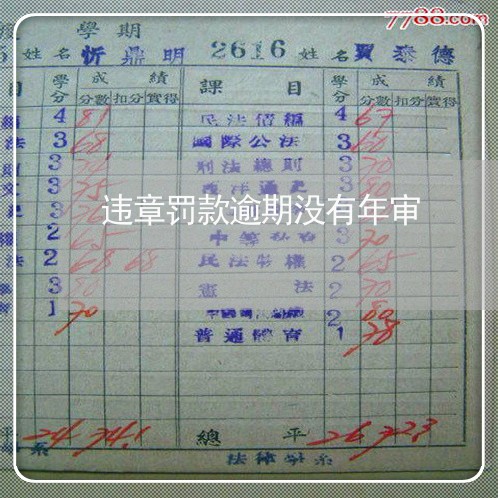 7788.com
學期
姓名 忻鼎明 2616 姓名 賈泰德
目 學分 成績 課目 學分 成績
分數 扣分 實得 分數 扣分 實得
4 81 民法債編 4 67
法 3 68 國際公法 3 60
3 刑法總則 3 70
3 75 西洋通史 3
违章罚款逾期没有年审
2 65 3 70
法 2 68 68 民法物權 2 65
3 80 憲法 2 70
1 70 2 80
普通體育 1 78
平 24 74.1 總平 26 72.3
系 法律學系